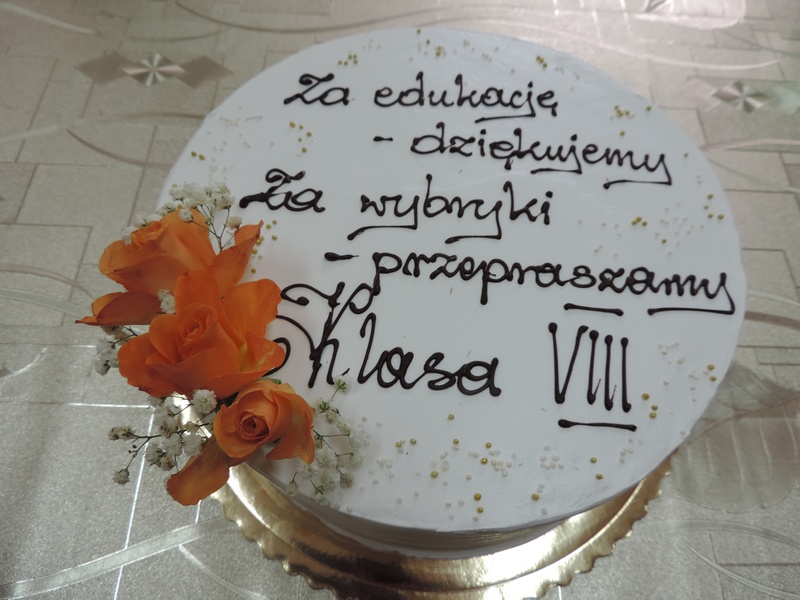 Za edukację
- dziękujemy
Za wybryki
- przepraszamy
Klasa VIII